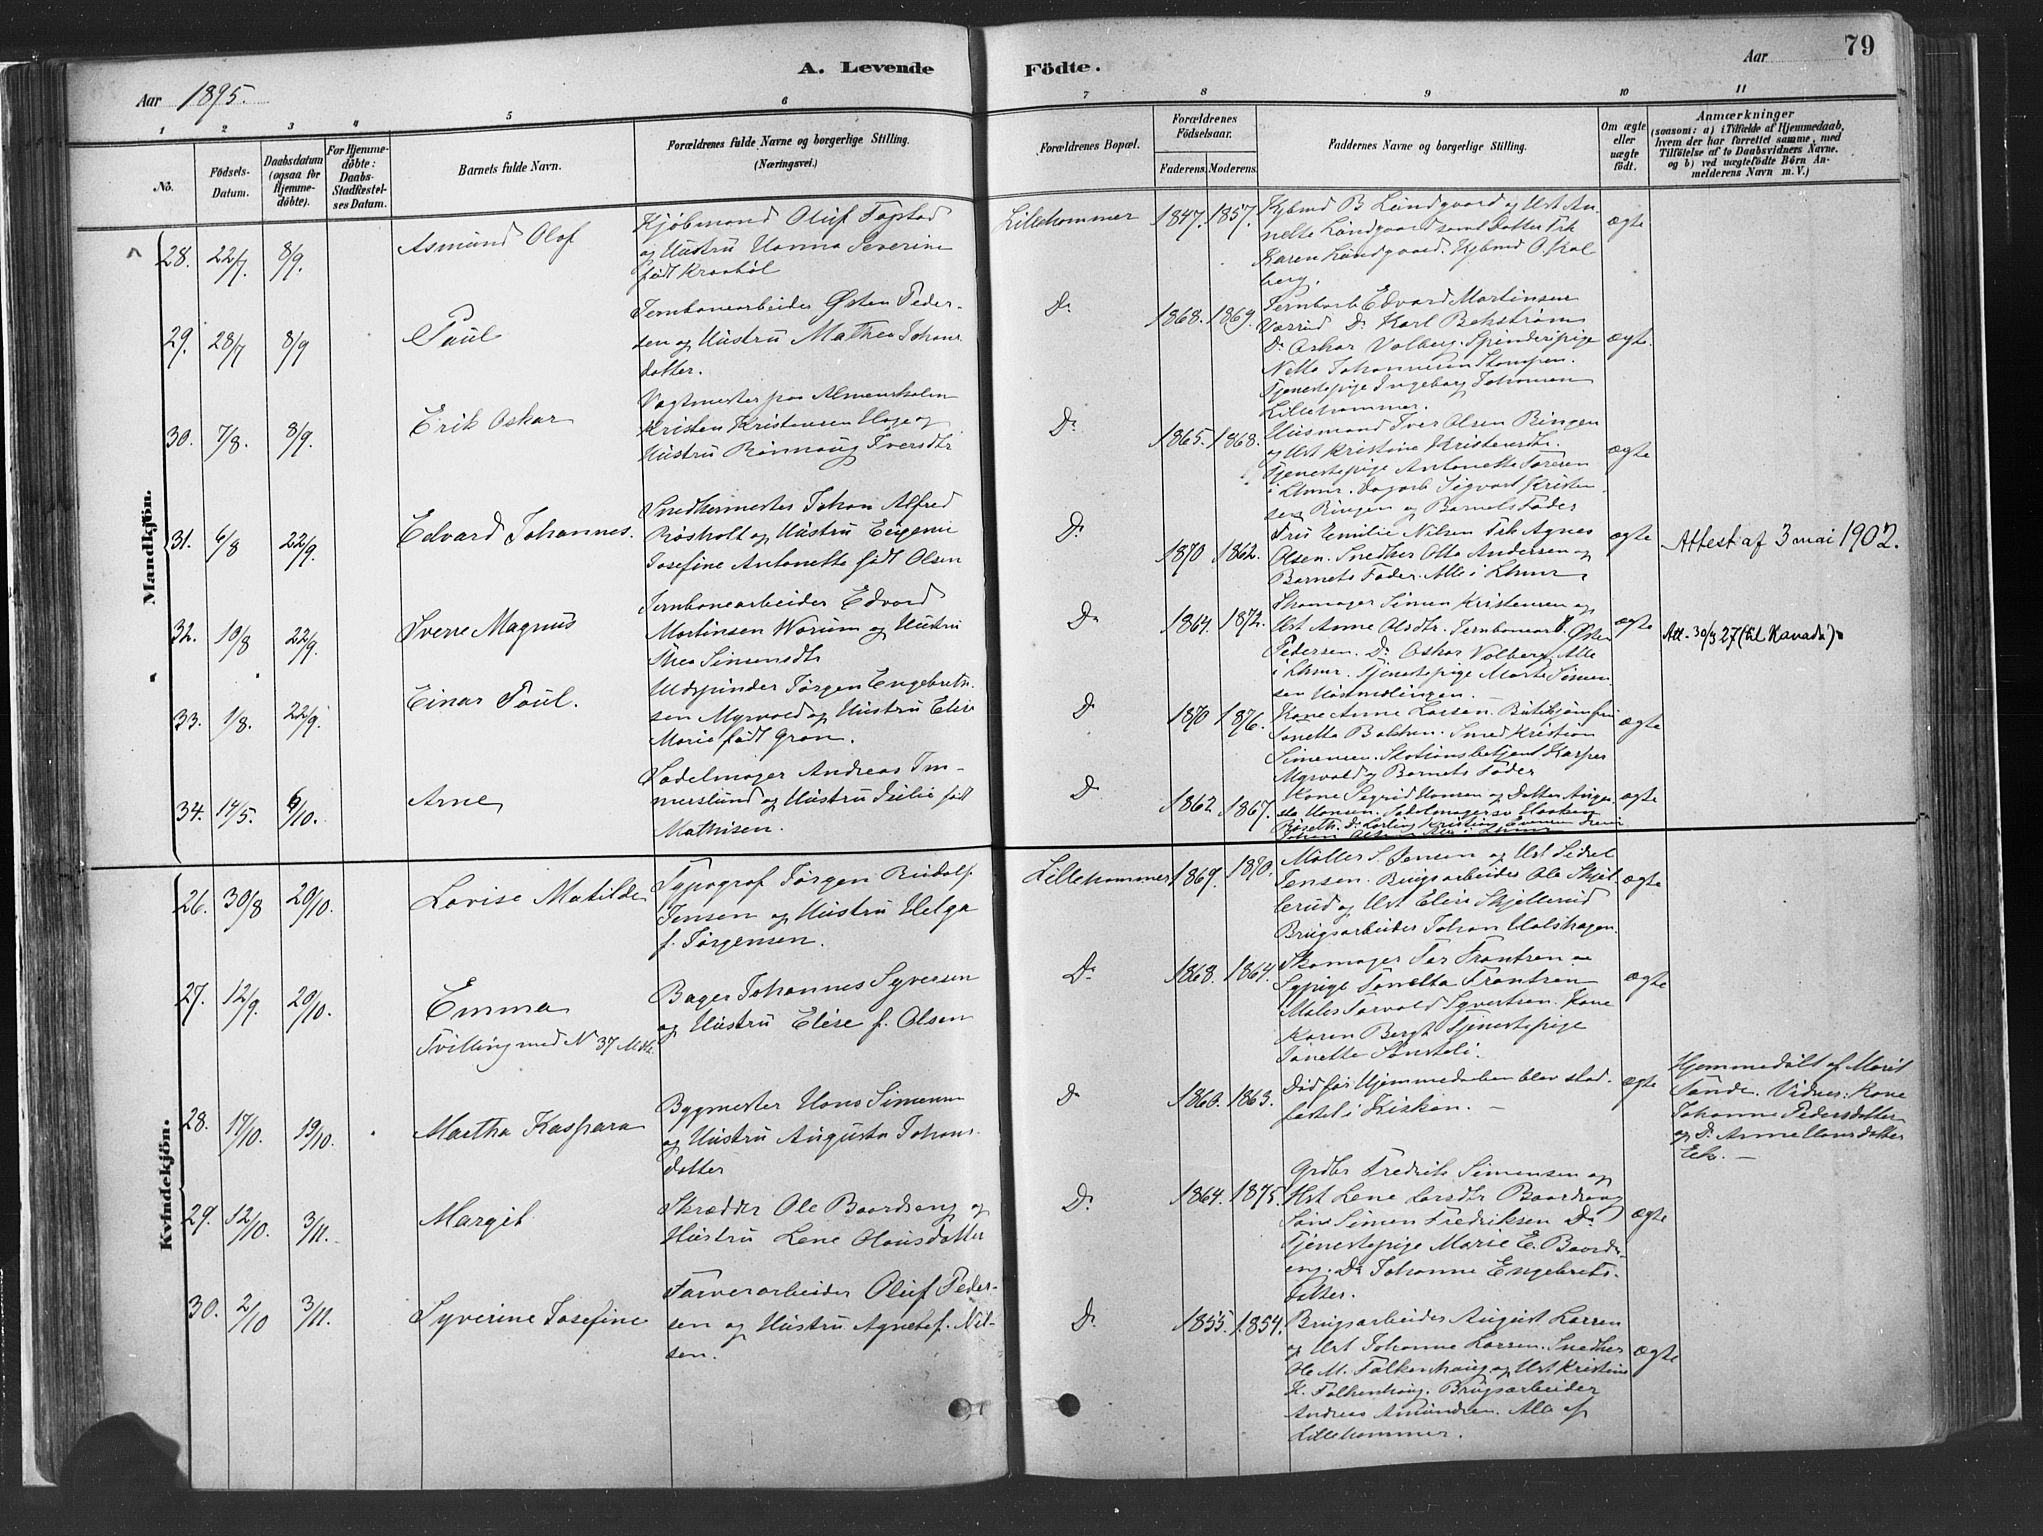 79
A. Levende Födte.
Aar 1895.
Aar
1 2 3 4 5 6 7 8 9 10 11
No.
Födsels-Datum.
Daabsdatum (ogsaa for Hjemme-döbte).
For Hjemme-döbte: Daabs-Stadfæstel-ses Datum.
Barnets fulde Navn.
Forældrenes fulde Navne og borgerlige Stilling. (Næringsvei.)
Forældrenes Bopæl.
Forældrenes Födselsaar.
Faderens. Moderens.
Faddernes Navne og borgerlige Stilling.
Om ægte eller uægte födt.
Anmærkninger
(saasom: a) i Tilfælde af Hjemmedaab, hvem der har forrettet samme, med Tilföielse af to Daabsvidners Navne. og b) ved uægtefödte Börn An-melderens Navn m. V.)
Mandkjön.
28. 22/7. 8/9. Asmund Olaf
Kjöbmand Oluf Fopstad
og Hustru Hanna Severine
født Kraaböl
Lillehammer 1847. 1857.
Kjbmd B Lundgaard og Ust An-
nette Lundgaard samt Datter Frk
Karen Lundgaard. Kjbmd O. Kol
berg.
ægte
29. 28/7 8/9 Paul
Jernbanearbeider Østen Peder-
sen og Hustru Mathea Johans
datter.
Do 1868. 1869.
Jernbarb Edvard Martinsen
Do Karl Bekström
Do Oskar Volberg. Spinderipige
Netta Johannesen Stampen.
Tjenestepige Ingeborg Johansen
Lillehammer.
ægte.
30. 7/8. 8/9. Erik Oskar
Vagtmester paa
Kristen Kristensen Hage og
Hustru Rönnaug Iversdtr
Do 1865. 1868.
Husmand Iver Olsen Ringen
og Ust Kristine Kristensdtr.
Tjenestepige Antonette
i Lhmr. Dagarb Sigvart Kristen
sen Ringen og Barnets Fader
ægte
31. 6/8 22/9. Edvard Johannes.
Snedkermester Johan Alfred
Røsholt og Hustru Eugenie
Josefine Antonette født Olsen
Do 1870 1862.
Fru Emilie Nilsen Frk Agnes
Olsen. Snedker Otto Andersen og
Barnets Fader. Alle i Lhmr.
ægte Attest af 3 mai 1902.
32. 10/8 22/9. Sverre Magnus
Jernbanearbeider Edvard
Martinsen Worum og Hustru
Thea Simensdtr
Do 1864. 1872.
Skomager Simen Kristensen og
Ust Anne Olsdtr. Jernbanearb. Østen
Pedersen. Do Oskar Volberg. Alle
i Lhmr. Tjenestepige Marte Simen
sen
ægte Att. 30/3 27 (til Kanada).
33. 1/8. 22/9. Einar Paul.
Udspinder Jørgen Engebrets.
sen Myrvold og Hustru Elise
Marie født Gran.
Do 1870 1876.
Kone Anne Larsen. Butikjomfru
Janetta Balchen. Smed Kristian
Simensen. Stationsbetjent Kasper
Myrvold og Barnets Fader
ægte
34. 14/5. 6/10. Arne
Sadelmager Andreas Im-
merslund og Hustru Julie født
Mathisen.
Do 1862. 1867.
Kone Sigrid Hansen og Datter Augu
sta Hansen. Sadelmagersv Haakon
ægte
Kvindekjön.
26. 30/8 20/10. Lovise Matilde
Typograf Jørgen Rudolf
Jensen og Hustru Helga
f. Jørgensen.
Lillehammer 1869. 1870.
Møller S. Jensen og Ust Sidsel
Jensen. Brugsarbeider Ole Skjel-
lerud og Ust Elise Skjellerud
Brugsarbeider Johan Ualshagen.
ægte
27. 12/9. 20/10. Emma
Tvilling med N 37 Mdk.
Bager Johannes Syversen
og Hustru Elise f. Olsen
Do 1868. 1864.
Skomager Tor Frantsen og
Sypige Janetta Frantsen
Maler Torvald Syvertsen. Kone
Karen Bergh Tjenestepige
Janette
ægte
28. 17/10. 19/10. Martha Kaspara
Bygmester Hans Simensen
og Hustru Augusta Johans
datter
Do 1860. 1863.
Død før Hjemmedaaben blev stad-
fæstet i Kirken. —
ægte
Hjemmedøbt af Marit
Sande. Vidner: Kone
Johanne Pedersdatter
og Do Anne Hansdatter
Eek. —
29. 12/10. 3/11. Margit
Skrædder Ole Baardseng og
Hustru Lene Olausdatter
Do 1864. 1875.
Grdbr Fredrik Simensen og
Ust Lene Larsdtr Baardseng
Søn Simen Fredriksen Do
Tjenestepige Marie E. Baards-
eng. Do Johanne Engebrets-
datter.
ægte
30. 2/10 3/11. Syverine Josefine
Farverarbeider Oluf Peder-
sen og Hustru Agnete f. Nil-
sen.
Do 1855. 1854.
Brugsarbeider August Larsen
og Ust Johanne Larsen. Snedker
Ole M. Falkenhaug og Ust Kristine
K. Falkenhaug. Brugsarbeider
Andreas Amundsen. Alle af
Lillehammer.
ægte